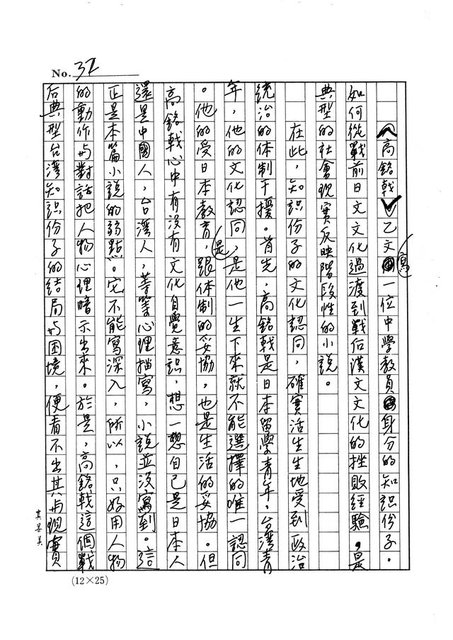 No. 32
〈高銘戟〉乙文寫一位中學教員身分的知識份子。
如何從戰前日文文化過渡到戰后漢文文化的挫敗經驗。是
典型的社會現實反映階段性的小說。
在此，知識份子的文化認同，確實活生生地受到政治
統治的体制干擾。首先，高銘戟是日本留學青年，台灣青
年，他的文化認同，是他一生下來就不能選擇的唯一認同
。他的受日本教育，是跟体制的妥協，也是生活的妥協。但
高銘戟心中有沒有文化自覺意識，想一想自己是日本人
還是中國人，台灣人，等等心理描寫，小說並沒寫到。這
正是本篇小說的弱點。它不能寫深入，所以，只好用人物
的動作与對話把人物心理暗示出來。於是，高銘戟這個戰
后典型台灣知識份子的結局与困境，便看不出其与現實
(12×25)